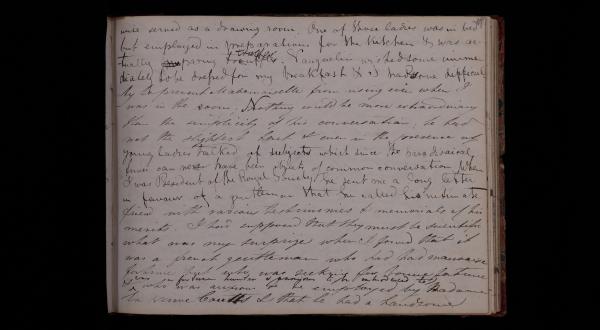 once served as a drawing room. One of these ladies was in bed
but employed in preparations for the kitchen & was ac-
tually paring truffles. Vauquelin wished some imme-
diately to be dressed for my breakfast & I had some difficul-
ty to prevent Mademoiselle from rising even when I
was in the room. Nothing could be more extraordinary
than the simplicity of his conversation; he had
not the slightest tact & even in the presence of
young Ladies talked of subjects which since the paradisaical
times can never have been objects of common conversation. When
I was President of the Royal Society he sent me a long letter
in favour of a gentleman that he called his intimate
friend with various testimonies & memorials of his
merits. I had supposed that they must be scientific
what was my surprize when I found that it
was a french gentleman who had had mauvaise
fortune but who was seeking for bonne fortune
& was a fortune hunter & anxious to be introduced to
who was anxious to be employed by Madame
la veuve Coutts & that he had a handsome